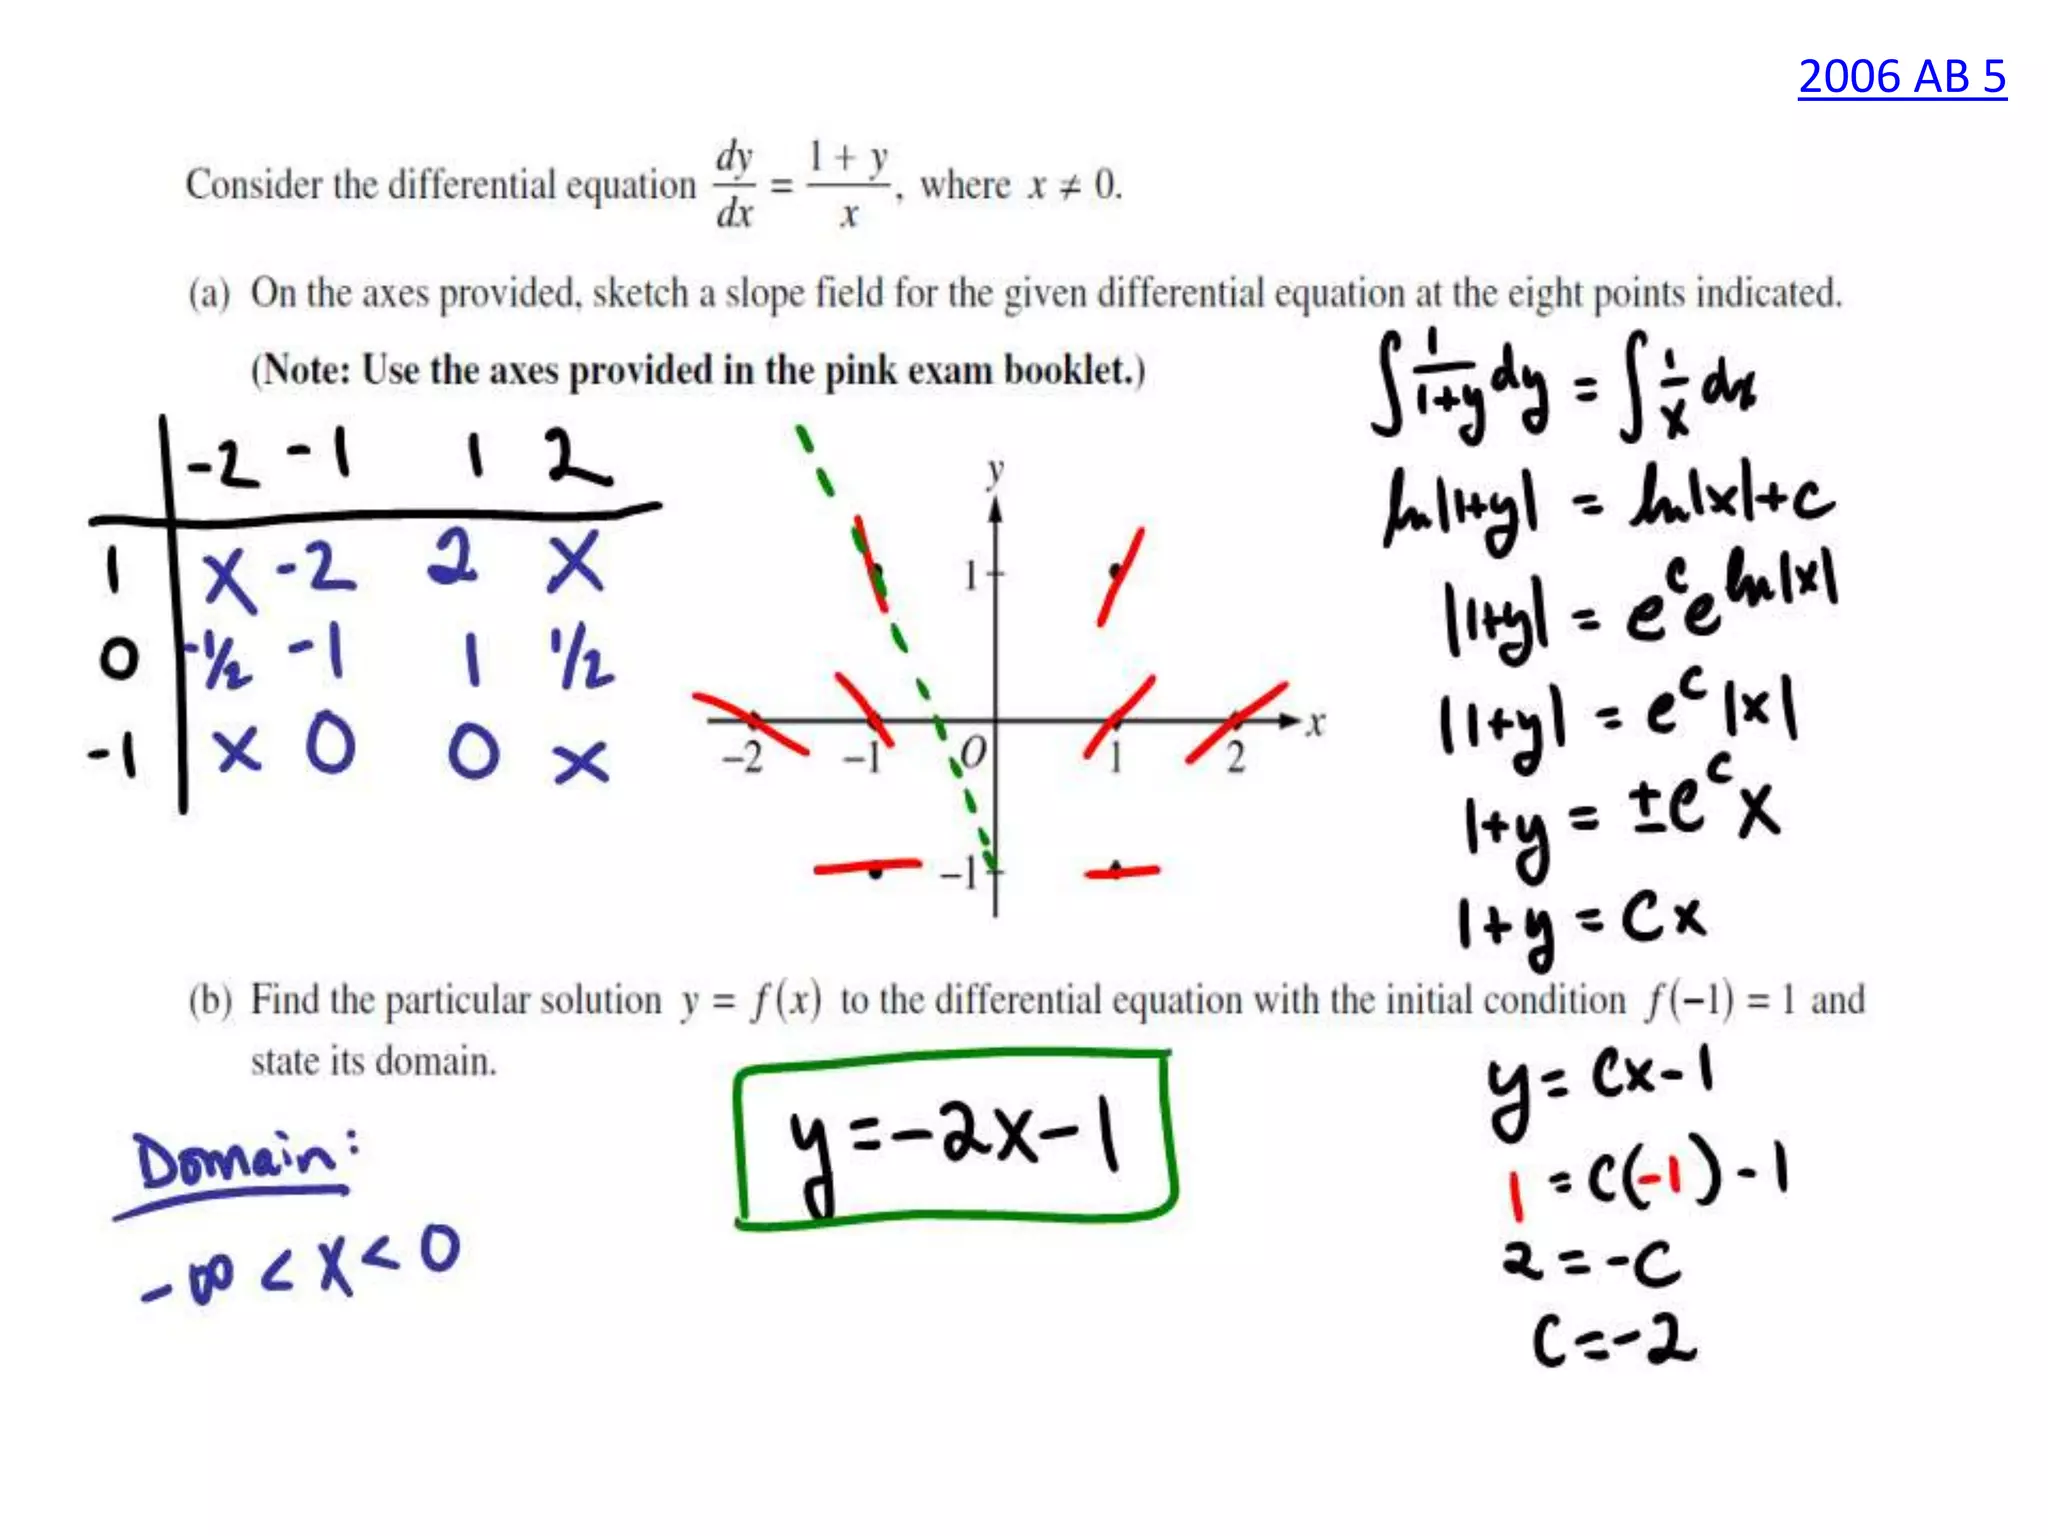 2006 AB 5
Consider the differential equation dy/dx = (1 + y)/x, where x ≠ 0.
(a) On the axes provided, sketch a slope field for the given differential equation at the eight points indicated.
(Note: Use the axes provided in the pink exam booklet.)
-2 -1 1 2
1 x -2 2 x
0 -1/2 -1 1 1/2
-1 x 0 0 x
y
1
-2 -1 O 1 2 x
-1
∫ 1/(1+y) dy = ∫ 1/x dx
ln|1+y| = ln|x|+c
|1+y| = e^c e^ln|x|
|1+y| = e^c |x|
1+y = ±e^c x
1+y = Cx
(b) Find the particular solution y = f(x) to the differential equation with the initial condition f(−1) = 1 and
state its domain.
Domain:
-∞ < x < 0
y=-2x-1
y = Cx-1
1 = C(-1)-1
2 = -C
C=-2